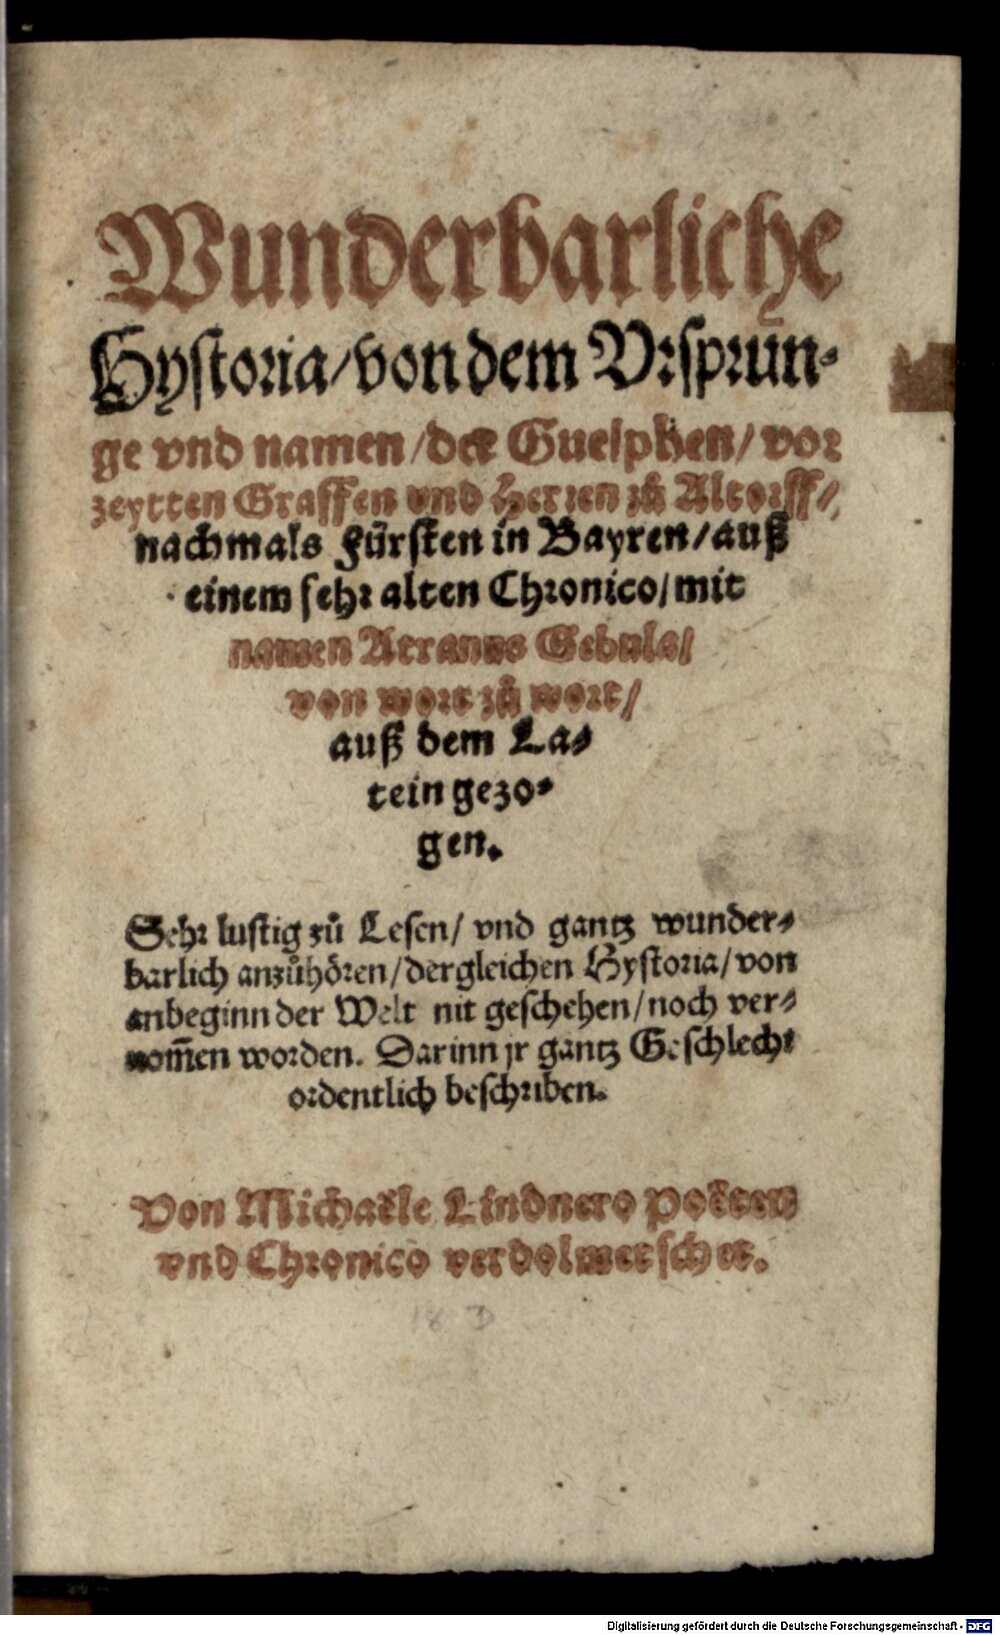 Wunderbarliche
Hystoria/ von dem Vrsprun-
ge vnd namen/ der Guelphen/ vor
zeytten Graffen vnd Herren zů Altorff/
nachmals Fürsten in Bayren/ auß
einem sehr alten Chronico/ mit
namen Atranus Gebula/
von wort zů wort/
auß dem La-
tein gezo-
gen.
Sehr lustig zů Lesen/ vnd gantz wunder-
barlich anzůhören/ dergleichen Hystoria/ von
anbeginn der Welt nit geschehen/ noch ver-
nom̄en worden. Darinn jr gantz Geschlecht
ordentlich beschriben.
Von Michaële Lindnero Poëten
vnd Chronico verdolmetschet.
18 D
Digitalisierung gefördert durch die Deutsche Forschungsgemeinschaft - DFG